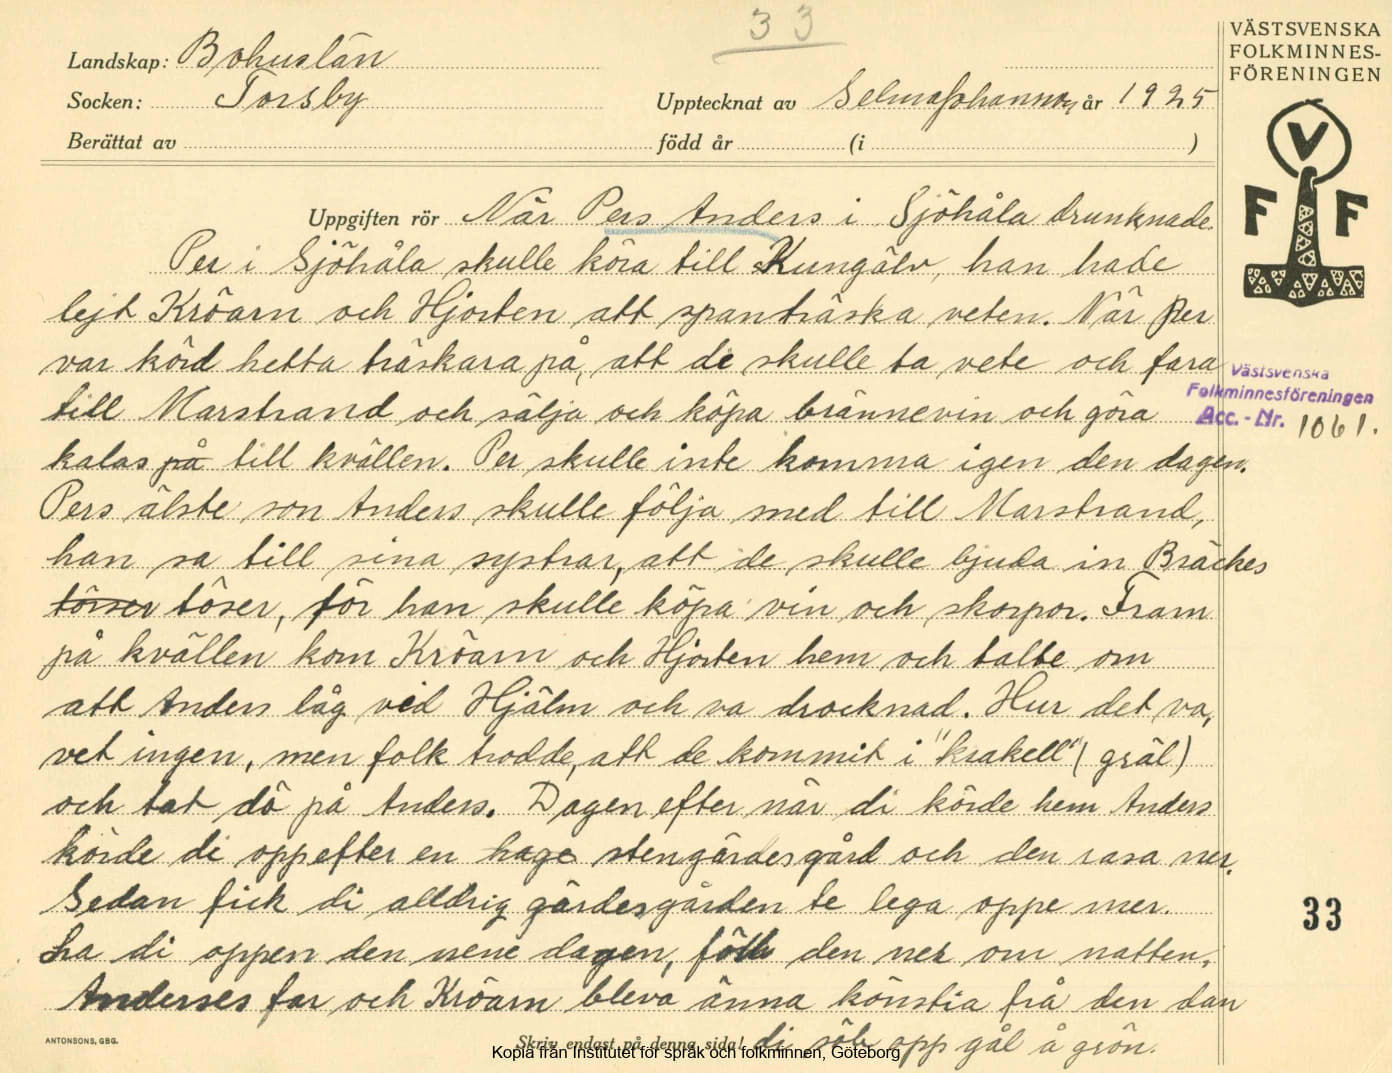 33
Landskap: Bohuslän
Socken: Torsby
Upptecknat av Selma Johansson, år 1925
Berättat av
född år (i )
VÄSTSVENSKA
FOLKMINNES-
FÖRENINGEN
V
F F
Uppgiften rör När Pers Anders i Sjöhåla drunknade.
Per i Sjöhåla skulle köra till Kungälv, han hade
lejt Kröarn och Hjorten att spanträska veten. När Per
var körd hetta träskara på, att de skulle ta vete och fara
till Marstrand och sälja och köpa brännevin och göra
kalas på till kvällen. Per skulle inte komma igen den dagen.
Pers älste son Anders skulle följa med till Marstrand,
han sa till sina systrar, att de skulle bjuda in Bräckes
törser töser, för han skulle köpa vin och skorpor. Fram
på kvällen kom Kröarn och Hjorten hem och talte om
att Anders låg vid Hjälm och va drocknad. Hur det va,
vet ingen, men folk trodde, att de kommit i "krakell" (gräl)
och tat dö på Anders. Dagen efter när di körde hem Anders
körde di oppefter en hage stengärdesgård och den rasa ner.
Sedan fick di alldrig gärdesgården te lega oppe mer.
La di oppen den nene dagen, föll den ner om natten.
Anderses far och Kröarn bleva änna könstia frå den dan
di söb opp gål å grön.
Västsvenska
Folkminnesföreningen
Acc. - Nr. 1061.
33
ANTONSONS, GBG.
Skriv endast på denna sida!
Kopia från Institutet för språk och folkminnen, Göteborg